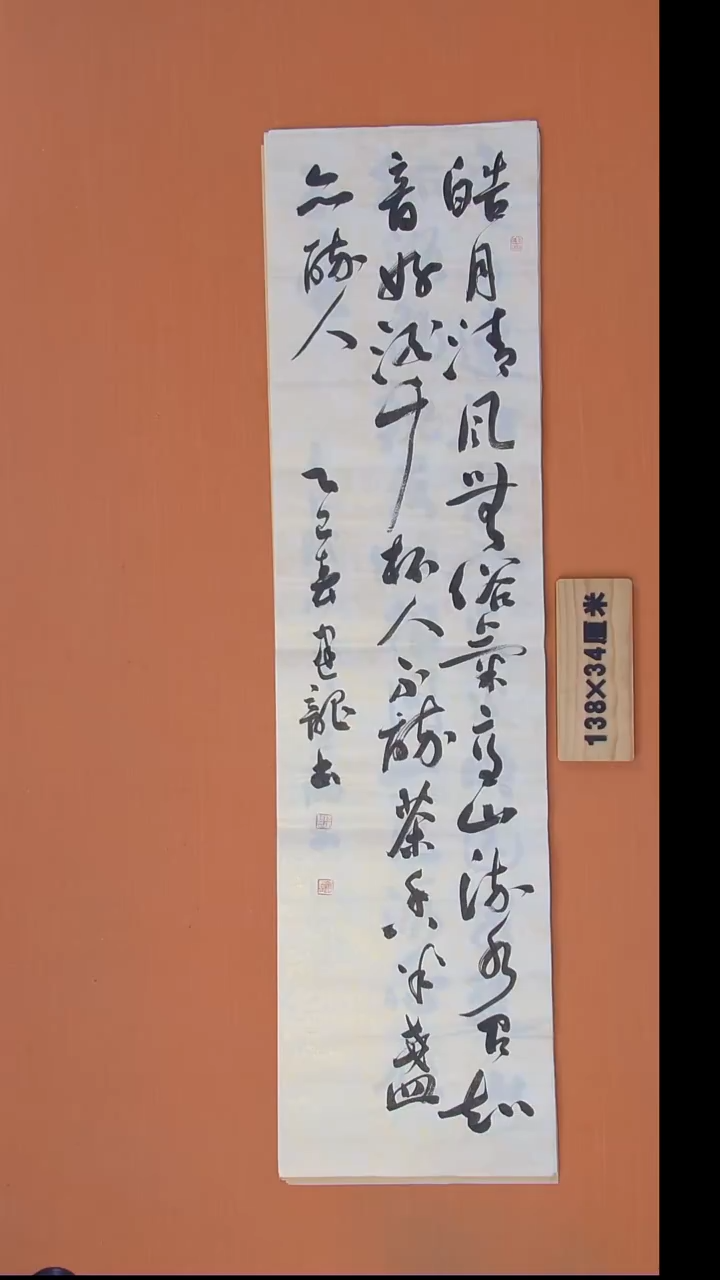 皓月清风無俗氣高山流水召知
音好酒千杯人不醉茶香半盏
亦醉人
乙巳春建龍书
138×34厘米